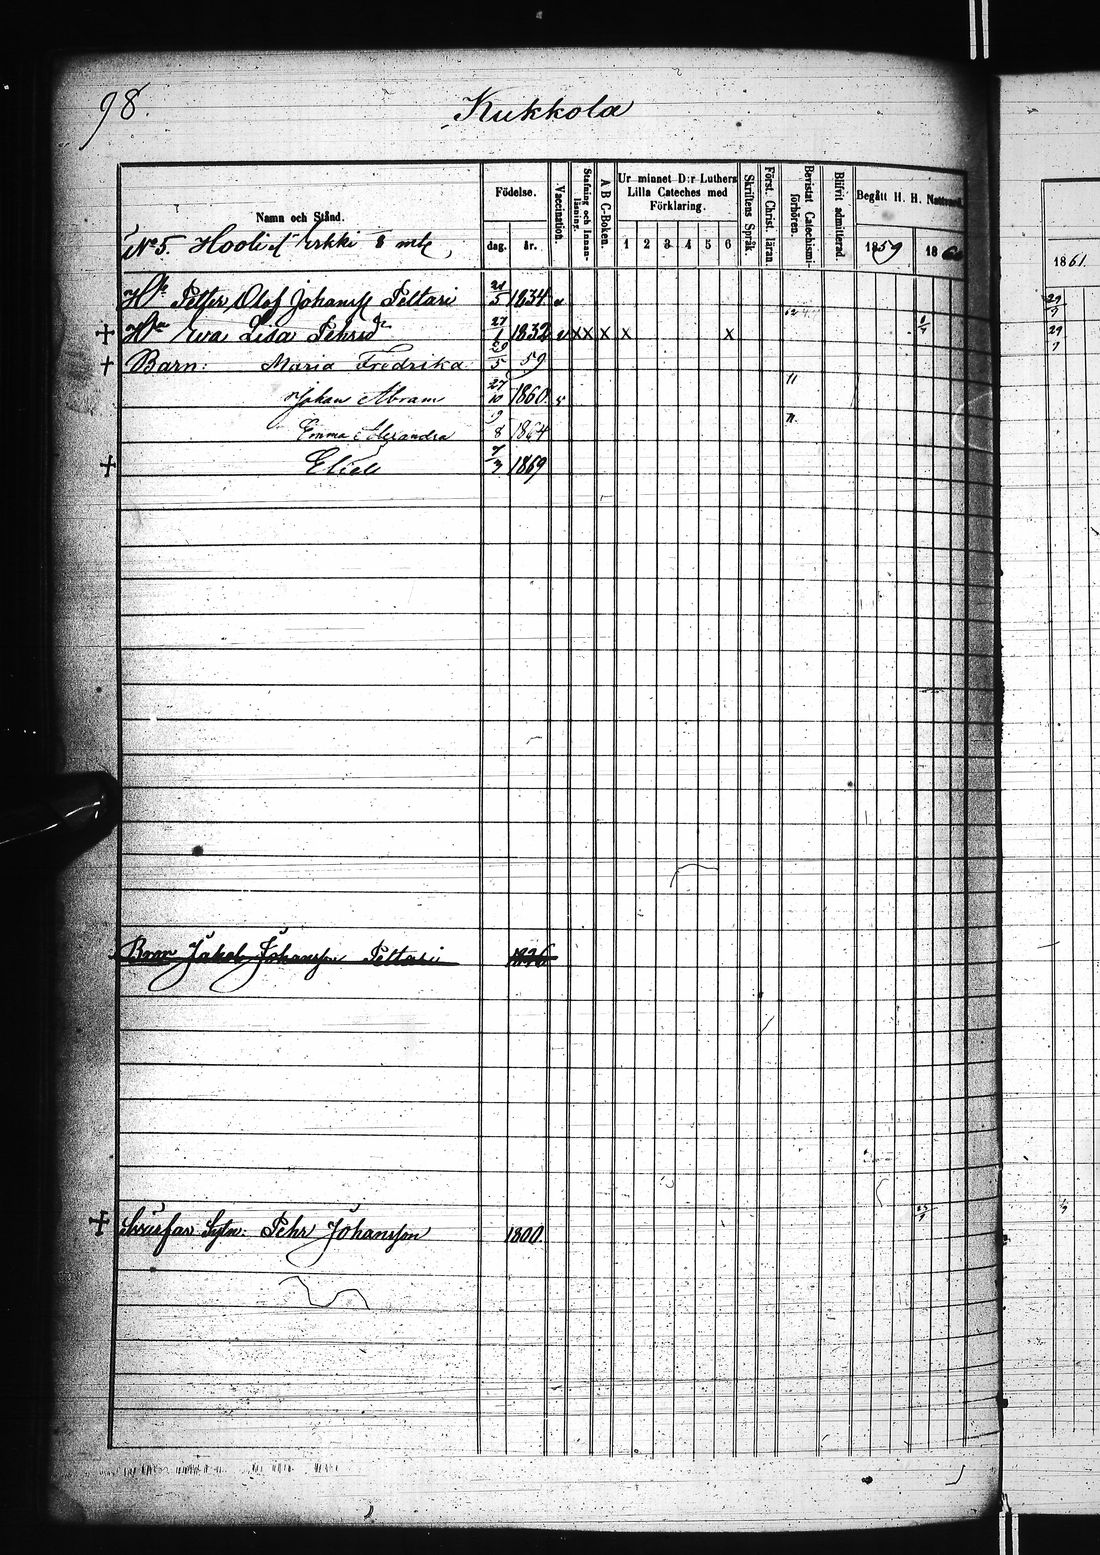 98.
Kukkola
Namn och Stånd.
Födelse.
dag.
år.
Vaccination.
Stafning och Innanläsning.
A B C-Boken.
Ur minnet D:r Luthers
Lilla Cateches med
Förklaring.
1 2 3 4 5 6
Skriftens Språk.
Först. Christ. läran.
Bevistat Catechismiförhören.
Blifvit admitterad
Begått H. H. Nattvard.
1859
1860
1861.
No 5. Hooli Erkki mtl
Petter Olof Johanss Peltari 21/5 1834 v
+ Eva Lisa Pehrsdr 27/1 1832 v X X X X X
+ Barn: Maria Fredrika 29/5 59
Johan Abram 27/10 1860 v 11
Emma Alexandra 9/8 1864 11.
+ Eliel 7/3 1869
Bror Jakob Johansson Peltari 1836
+ Svärfar Sytn: Pehr Johansson 1800.